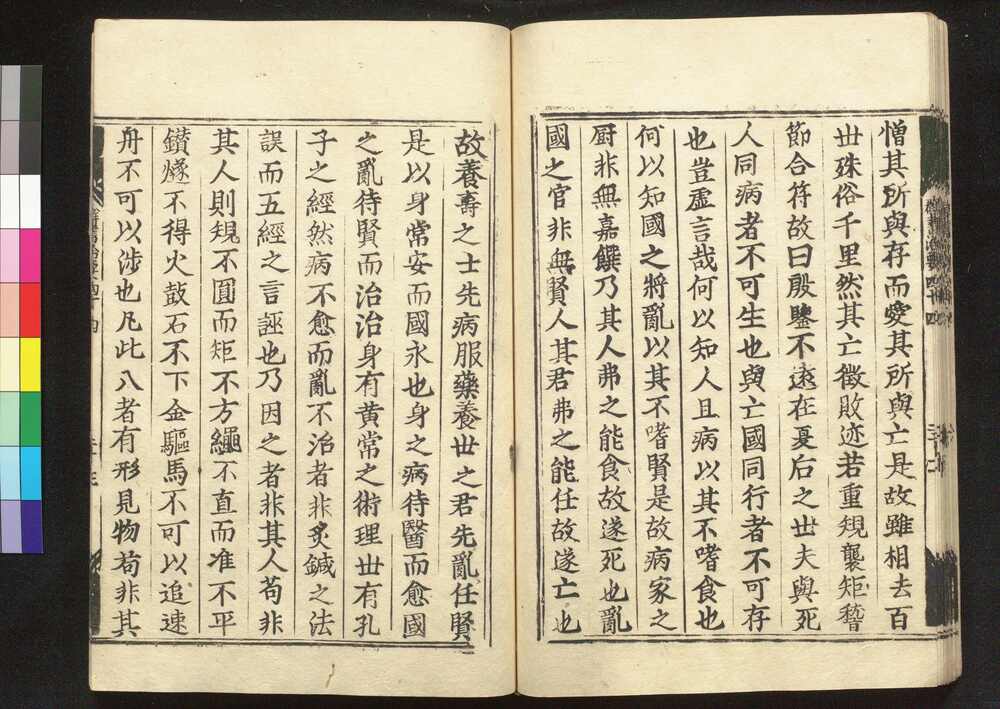 憎其所與存而愛其所與亡是故雖相去百
世殊俗千里然其亡徵敗迹若重規襲矩稽
節合符故曰殷鑒不遠在夏后之世夫與死
人同病者不可生也與亡國同行者不可存
也豈虛言哉何以知人且病以其不嗜食也
何以知國之將亂以其不嗜賢是故病家之
厨非無嘉饌乃其人弗之能食故遂死也亂
國之官非無賢人其君弗之能任故遂亡也
故養壽之士先病服藥養世之君先亂任賢
是以身常安而國永也身之病待醫而愈國
之亂待賢而治治身有黄帝之術理世有孔
子之經然病不愈而亂不治者非炙鍼之法
誤而五經之言誣也乃因之者非其人苟非
其人則規不圓而矩不方繩不直而准不平
鑚燧不得火鼓石不下金驅馬不可以追速
舟不可以涉也凡此八者有形見物苟非其